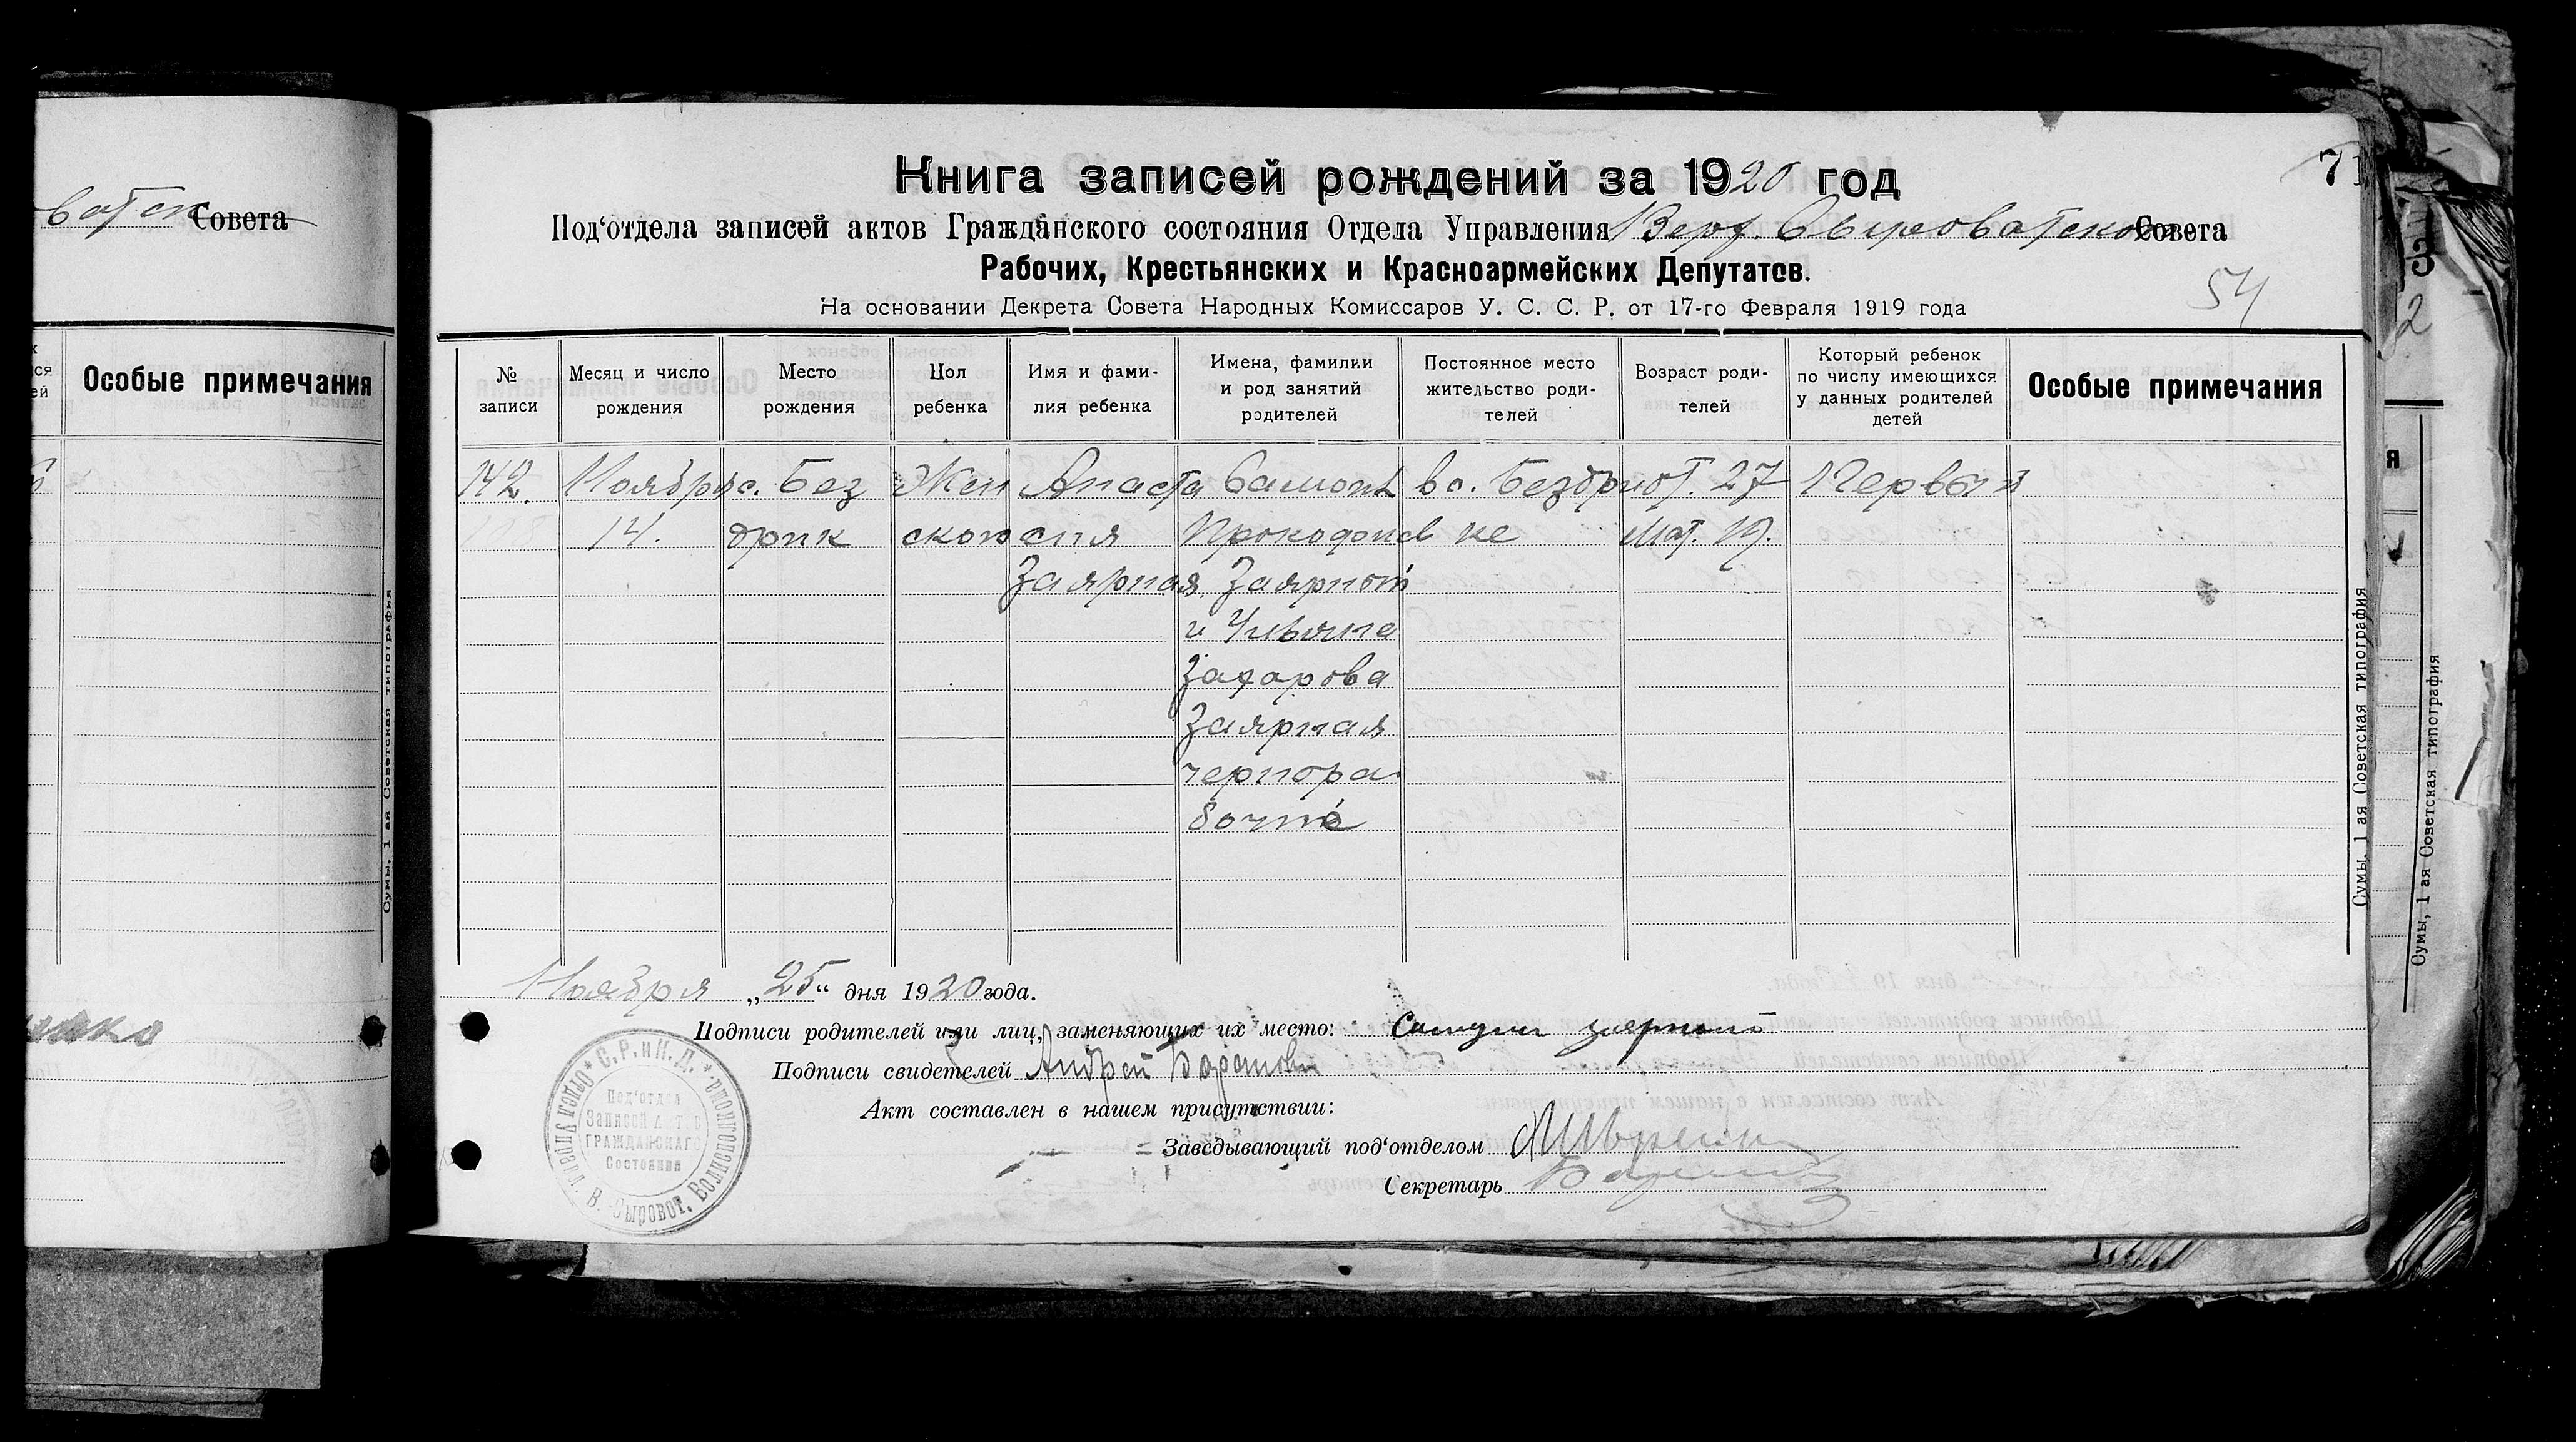 Книга записей рождений за 1920 год
Под'отдела записей актов Гражданского состояния Отдела Управления Верх. Сыроватского Совета
Рабочих, Крестьянских и Красноармейских Депутатов.
На основании Декрета Совета Народных Комиссаров У. С. С. Р. от 17-го Февраля 1919 года
7
54
Совета
Особые примечания
№ записи
Месяц и число рождения
Место рождения
Пол ребенка
Имя и фамилия ребенка
Имена, фамилки и род занятий родителей
Постоянное место жительство родителей
Возраст родителей
Который ребенок по числу имеющихся у данных родителей детей
Особые примечания
142.
Ноября
14.
с. Без
дрик
Жен
ского
Анаста
сия
Заярная
Самоил
Прокофиев
Заярный
и Ульяна
Захарова
Заярная
чернора
бочие
в с. Бездри
ке
от. 27
мат. 19.
Первый
Ноября „25“ дня 1920 года.
Подписи родителей или лиц, заменяющих их место: Самуил заярный
Подписи свидетелей Андрей
Акт составлен в нашем присутствии:
Заведывающий под'отделом
Секретарь
С. Р. и К. Д. Отдел Управл. В. Сыроват. Волисполкома
Под'отдел
Записей А т в
ГРАЖДАНСКАГО
Состояния
Сумы, 1 ая Советская типография
Сумы, 1 ая Советская типография
Сумы, 1 ая Советская типография
3
2
я